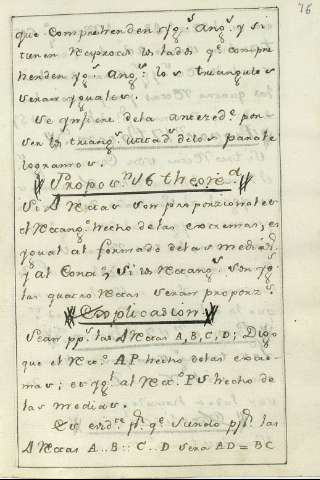 76
que comprehenden yg.s Ang.s y si
tienen reciprocos los lados q.e compre
henden yg.s Ang.s: los triangulos
seran yguales.
Se ynfiere de la anteced.e por
ser los triang.s de los
Propos.n 16 theore.a
Si 4 Rectas son proporcionales
el Rectang.o hecho de las extremas, es
ygual al formado de las medias
y al Contr.o Si los Rectang.s son yg.s
las quatro Rectas seran proporz.s
Explicacion
Sean pp.s las 4 Rectas A, B, C, D; Digo
que el Rec.o AD hecho de las extre
mas; es yg.l al Rec.o hecho de
las medias.
Es evid.te p.r q.e siendo pp.s las
4 Rectas A..B::C..D sera AD=BC